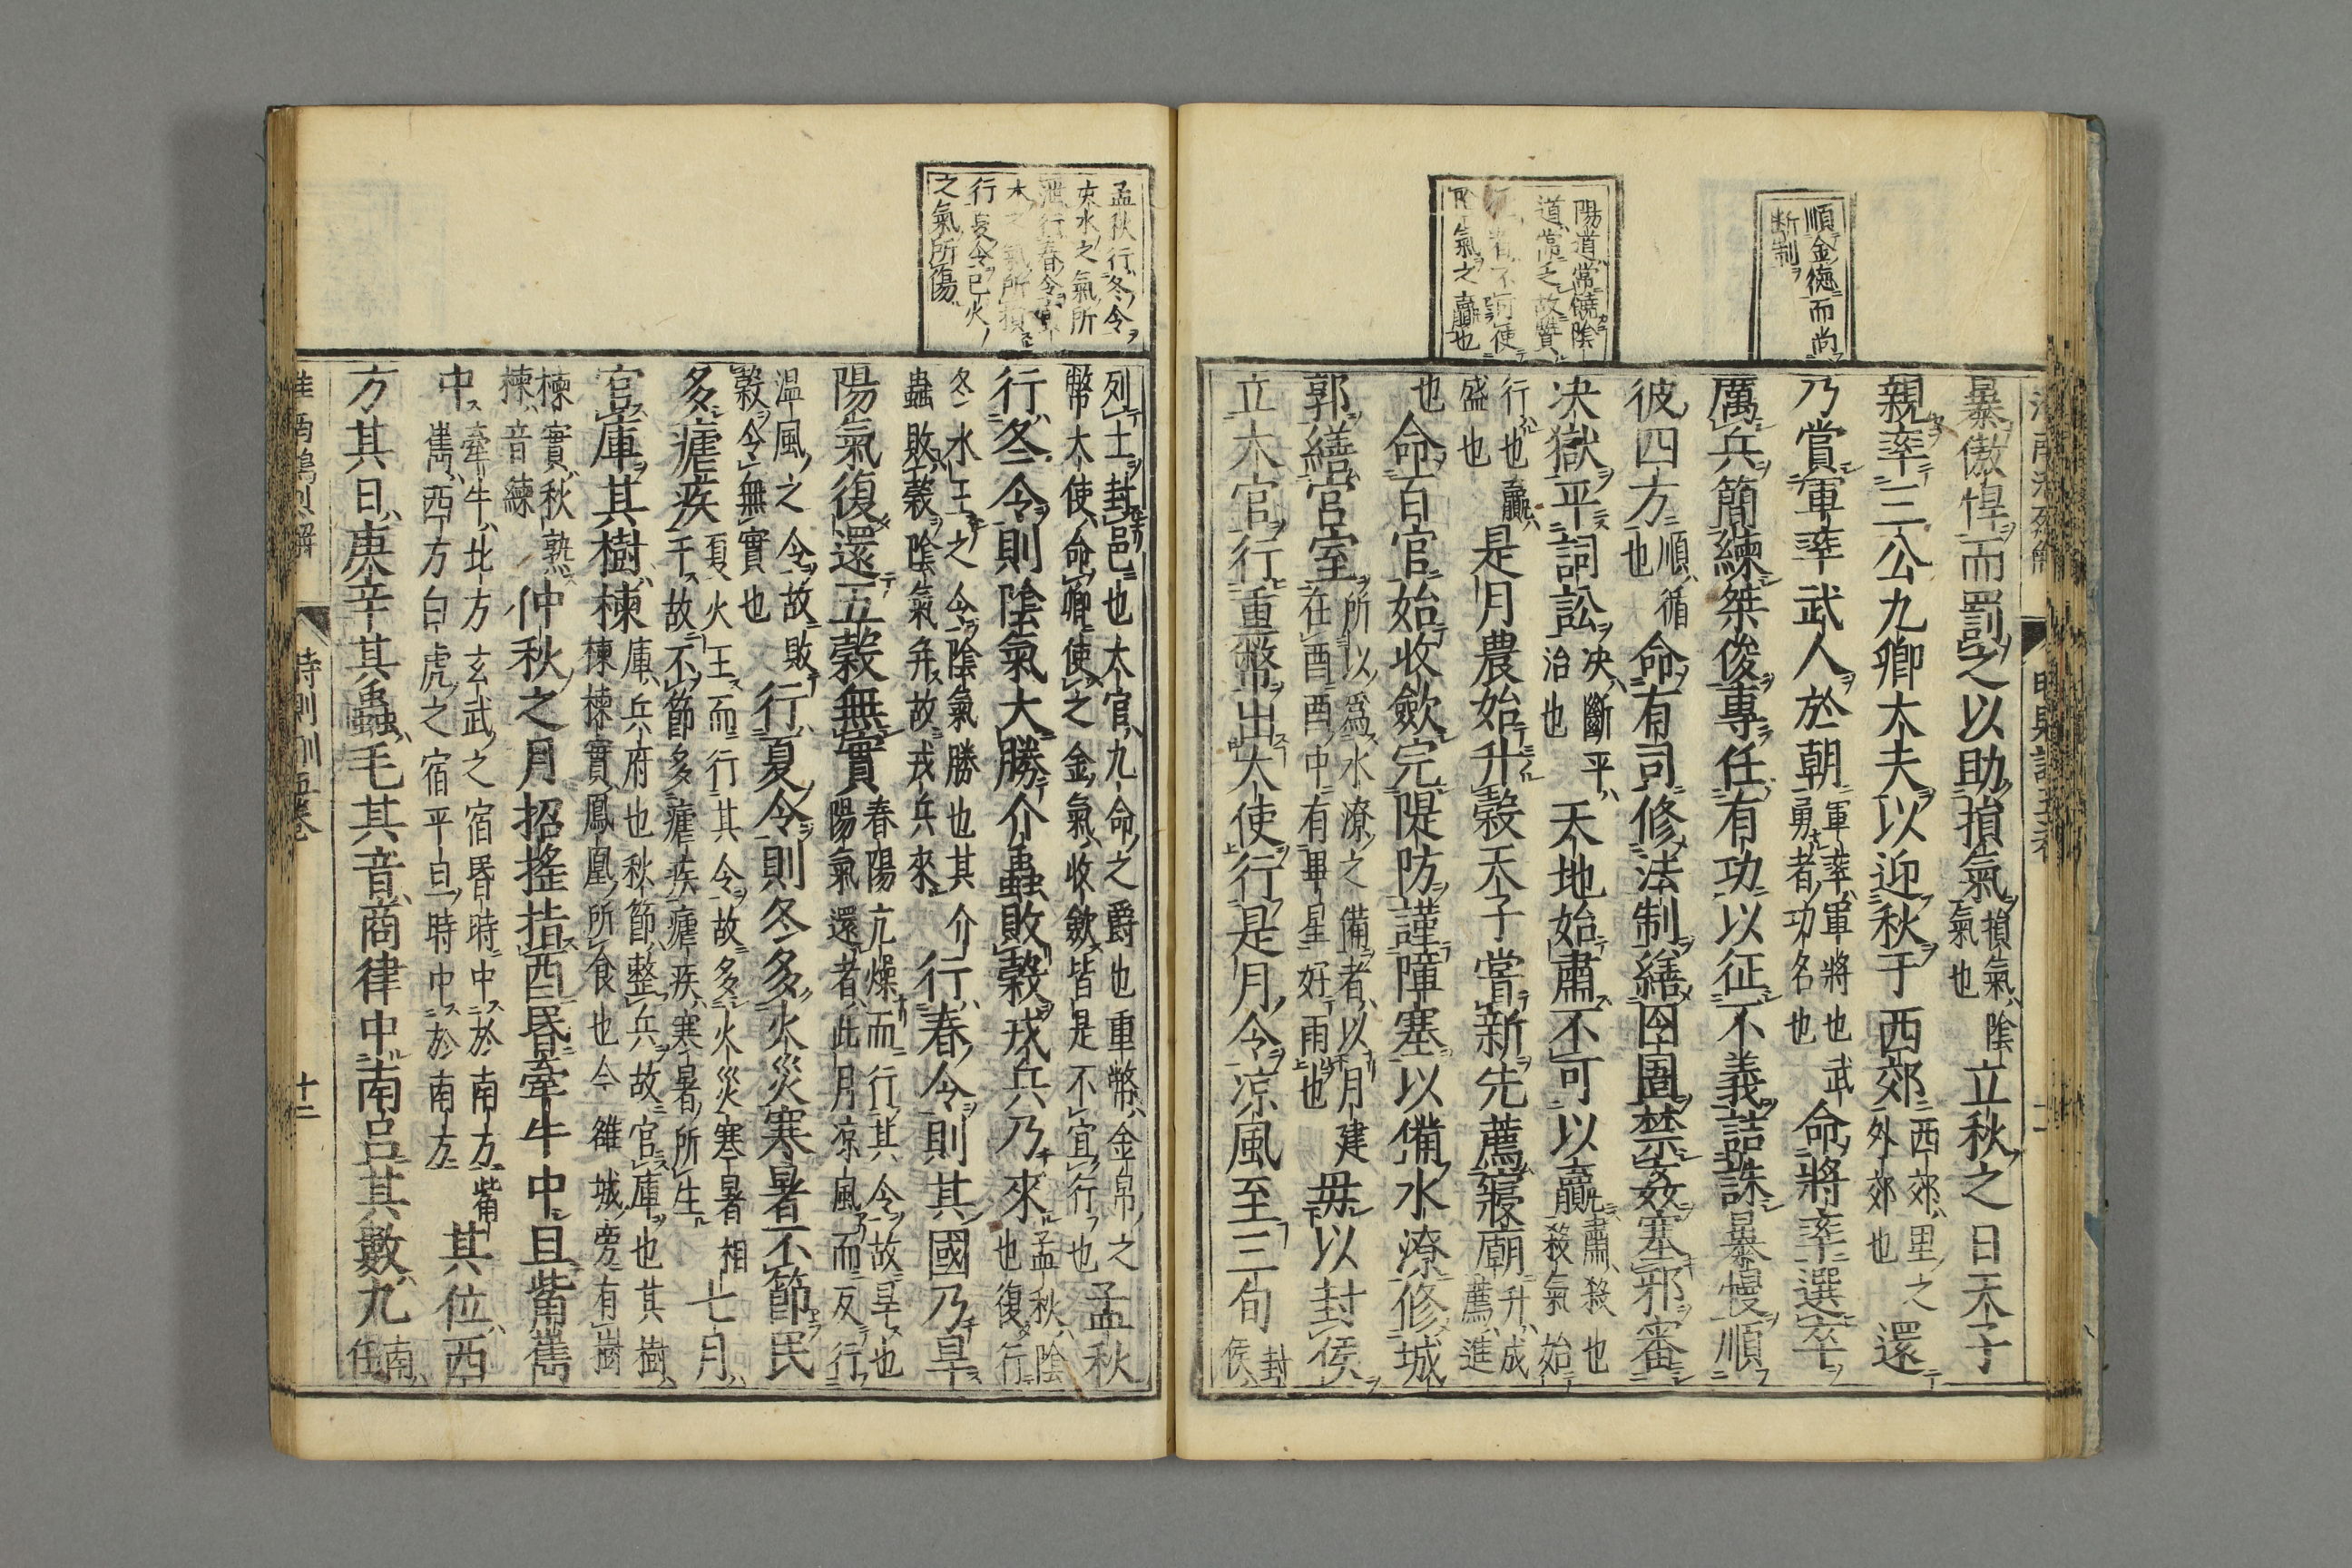 順金德而尚
断制
陽道常饒陰
道常乏故贊
陰氣之贏也
暴傲悍而罰之以助損氣損氣、陰氣也立秋之日天子
親率三公九卿大夫以迎秋于西郊西郊、九里之外郊也還
乃賞軍率武人於朝軍率、軍將也武勇者、功名也命將率選卒
厲兵簡練桀俊專任有功以征不義詰誅暴慢順
彼四方順、循也命有司修法制繕囹圄禁姦塞邪審
决獄平詞訟决、斷平、治也天地始肅不可以贏肅、殺也殺氣始
行也贏、盛也是月農始升穀天子嘗新先薦寢廟升、成薦、進
也命百官始收斂完隄防謹障塞以備水潦修城
郭繕宮室所以為水潦之備者、以月建在酉酉中有畢星好雨也毋以封侯
立大官行重幣出大使行是月令凉風至三旬封侯、
孟秋行冬令
來水之氣所
泄行春令
木之氣所損
行夏令已火
之氣所傷
列土封邑也大官、九命之爵也重幣、金帛之幣大使、命卿使之金氣、收斂皆是不宜行也孟秋
行冬令則陰氣大勝介蟲敗穀戎兵乃來孟秋、陰也復行
冬水王之令陰氣勝也其介蟲敗穀陰氣升故戎兵來行春令則其國乃旱
陽氣復還五穀無實春陽亢燥而行其令故旱也陽氣還者、此月凉風而反行
温風之令故敗穀令無實也行夏令則冬多火災寒暑不節民
多瘧疾夏火王而行其令故多火災寒暑相干故不節多瘧疾瘧疾、寒暑所生七月、
官庫其樹楝庫、兵府也秋節整兵故官庫也其樹、楝楝實鳳凰所食也今雒城旁有樹
楝實、秋熟楝、音練仲秋之月招搖指酉昏牽牛中旦觜嶲
中牽牛、北方玄武之宿昏時中於南方觜嶲、西方白虎之宿平旦時中於南方其位、西
方其日、庚辛其蟲、毛其音、商律中南呂其數九南、任
時則訓五卷
十二